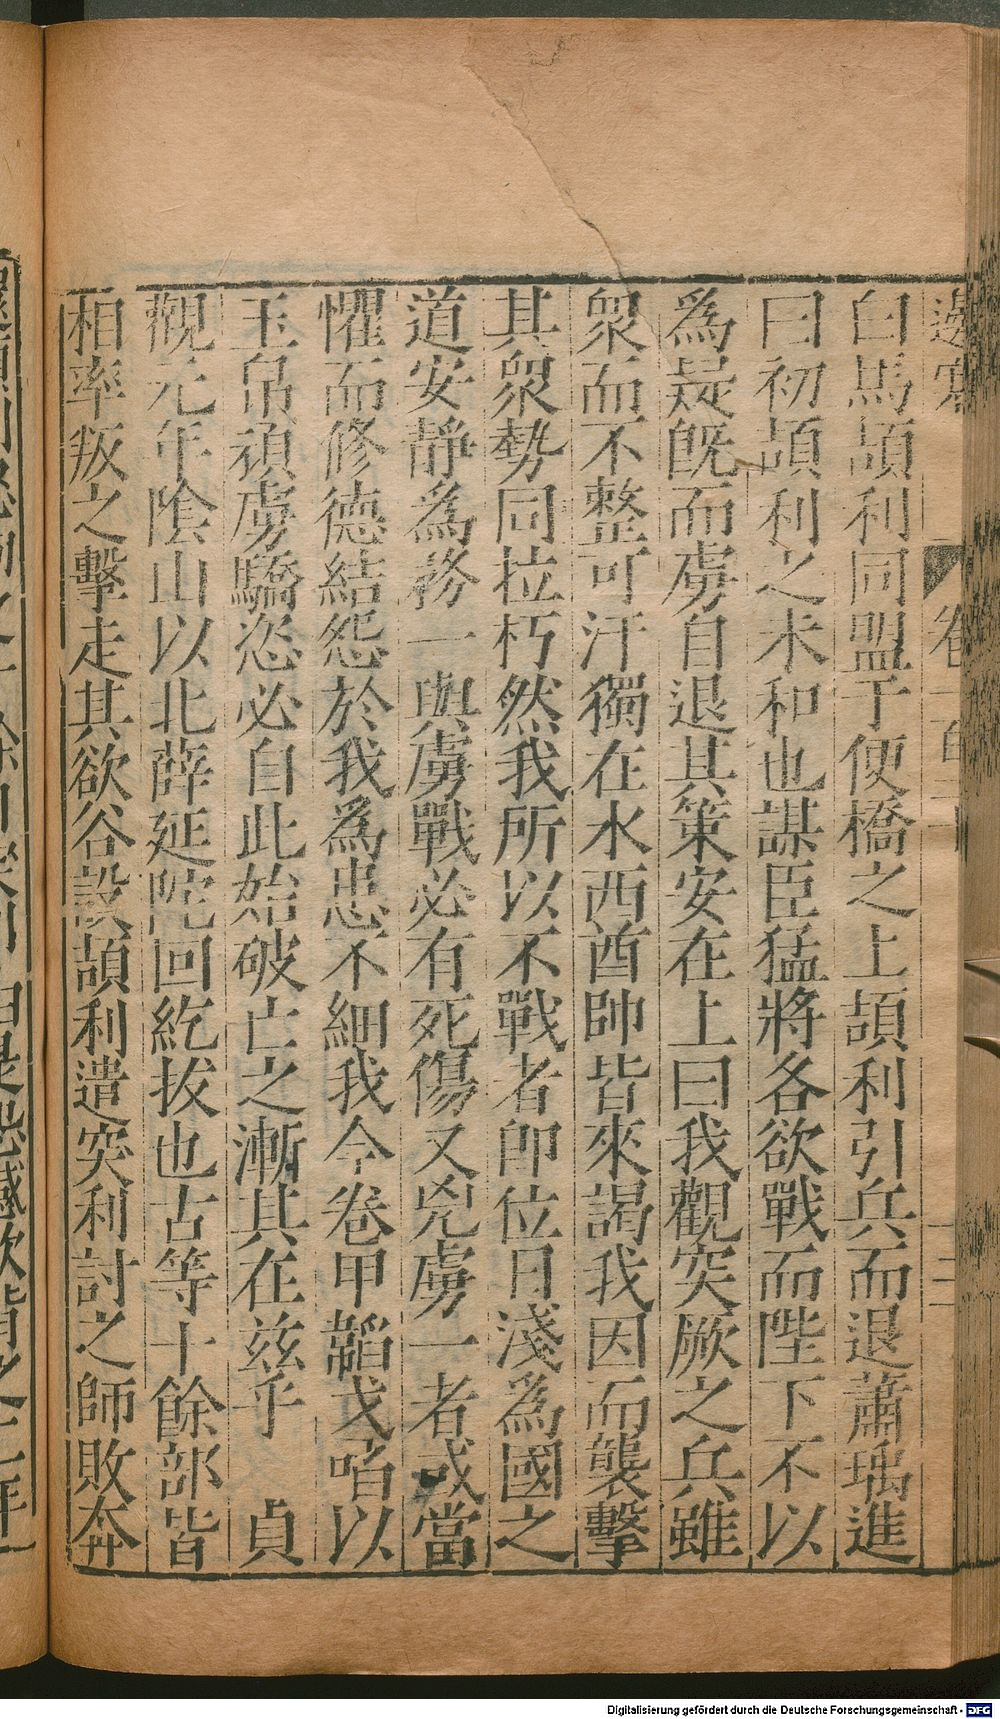 白馬頡利同盟于便橋之上頡利引兵而退蕭瑀進
曰初頡利之未和也謀臣猛將各欲戰而陛下不以
為疑既而虜自退其策安在上曰我觀突厥之兵雖
衆而不整可汗獨在水西酋帥皆來謁我因而襲擊
其衆勢同拉朽然我所以不戰者即位日淺為國之
道安靜為務一與虜戰必有死傷又兇虜一者或當
懼而修德結怨於我為患不細我今卷甲韜戈啗以
玉帛頑虜驕恣必自此始破亡之漸其在兹乎　貞
觀元年陰山以北薛延陀回紇拔也古等十餘部皆
相率叛之擊走其欲谷設頡利遣突利討之師敗奔
Digitalisierung gefördert durch die Deutsche Forschungsgemeinschaft - DFG